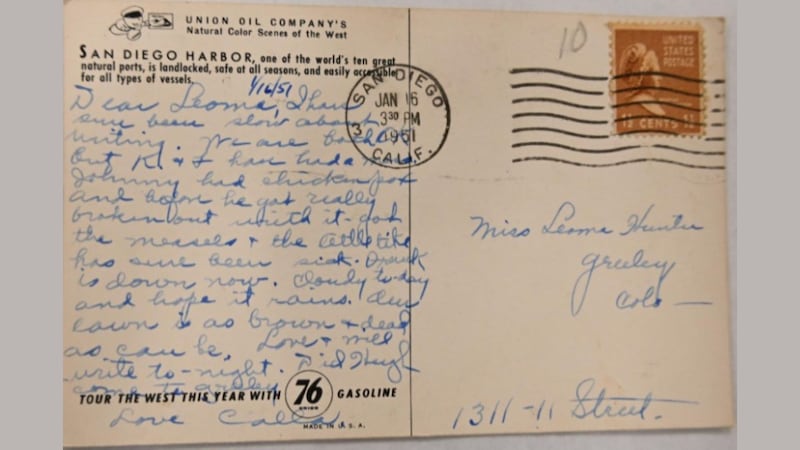 UNION OIL COMPANY'S
Natural Color Scenes of the West
SAN DIEGO HARBOR, one of the world's ten great
natural ports, is landlocked, safe at all seasons, and easily accessible
for all types of vessels.
1/16/51
Dear Leoma, I have
sure been slow about
writing. We are both
but K. & J have had
Johnny had chicken pox
and before he got really
broken out with it - got
the measels & the little tike
has sure been sick. Frank
is down now. Cloudy to-day
and hope it rains. Our
lawn is as brown & dead
as can be. Love & will
write to-night. Did Hugh
come to Greeley
Love Calla
TOUR THE WEST THIS YEAR WITH 76 UNION GASOLINE
MADE IN U.S.A.
SAN DIEGO
JAN 16
3 30 PM
1951
3
CALIF.
10
UNITED
STATES
POSTAGE
1½ CENTS 1½
Miss Leoma Hunter
Greeley
Colo —
1311-11 Street.